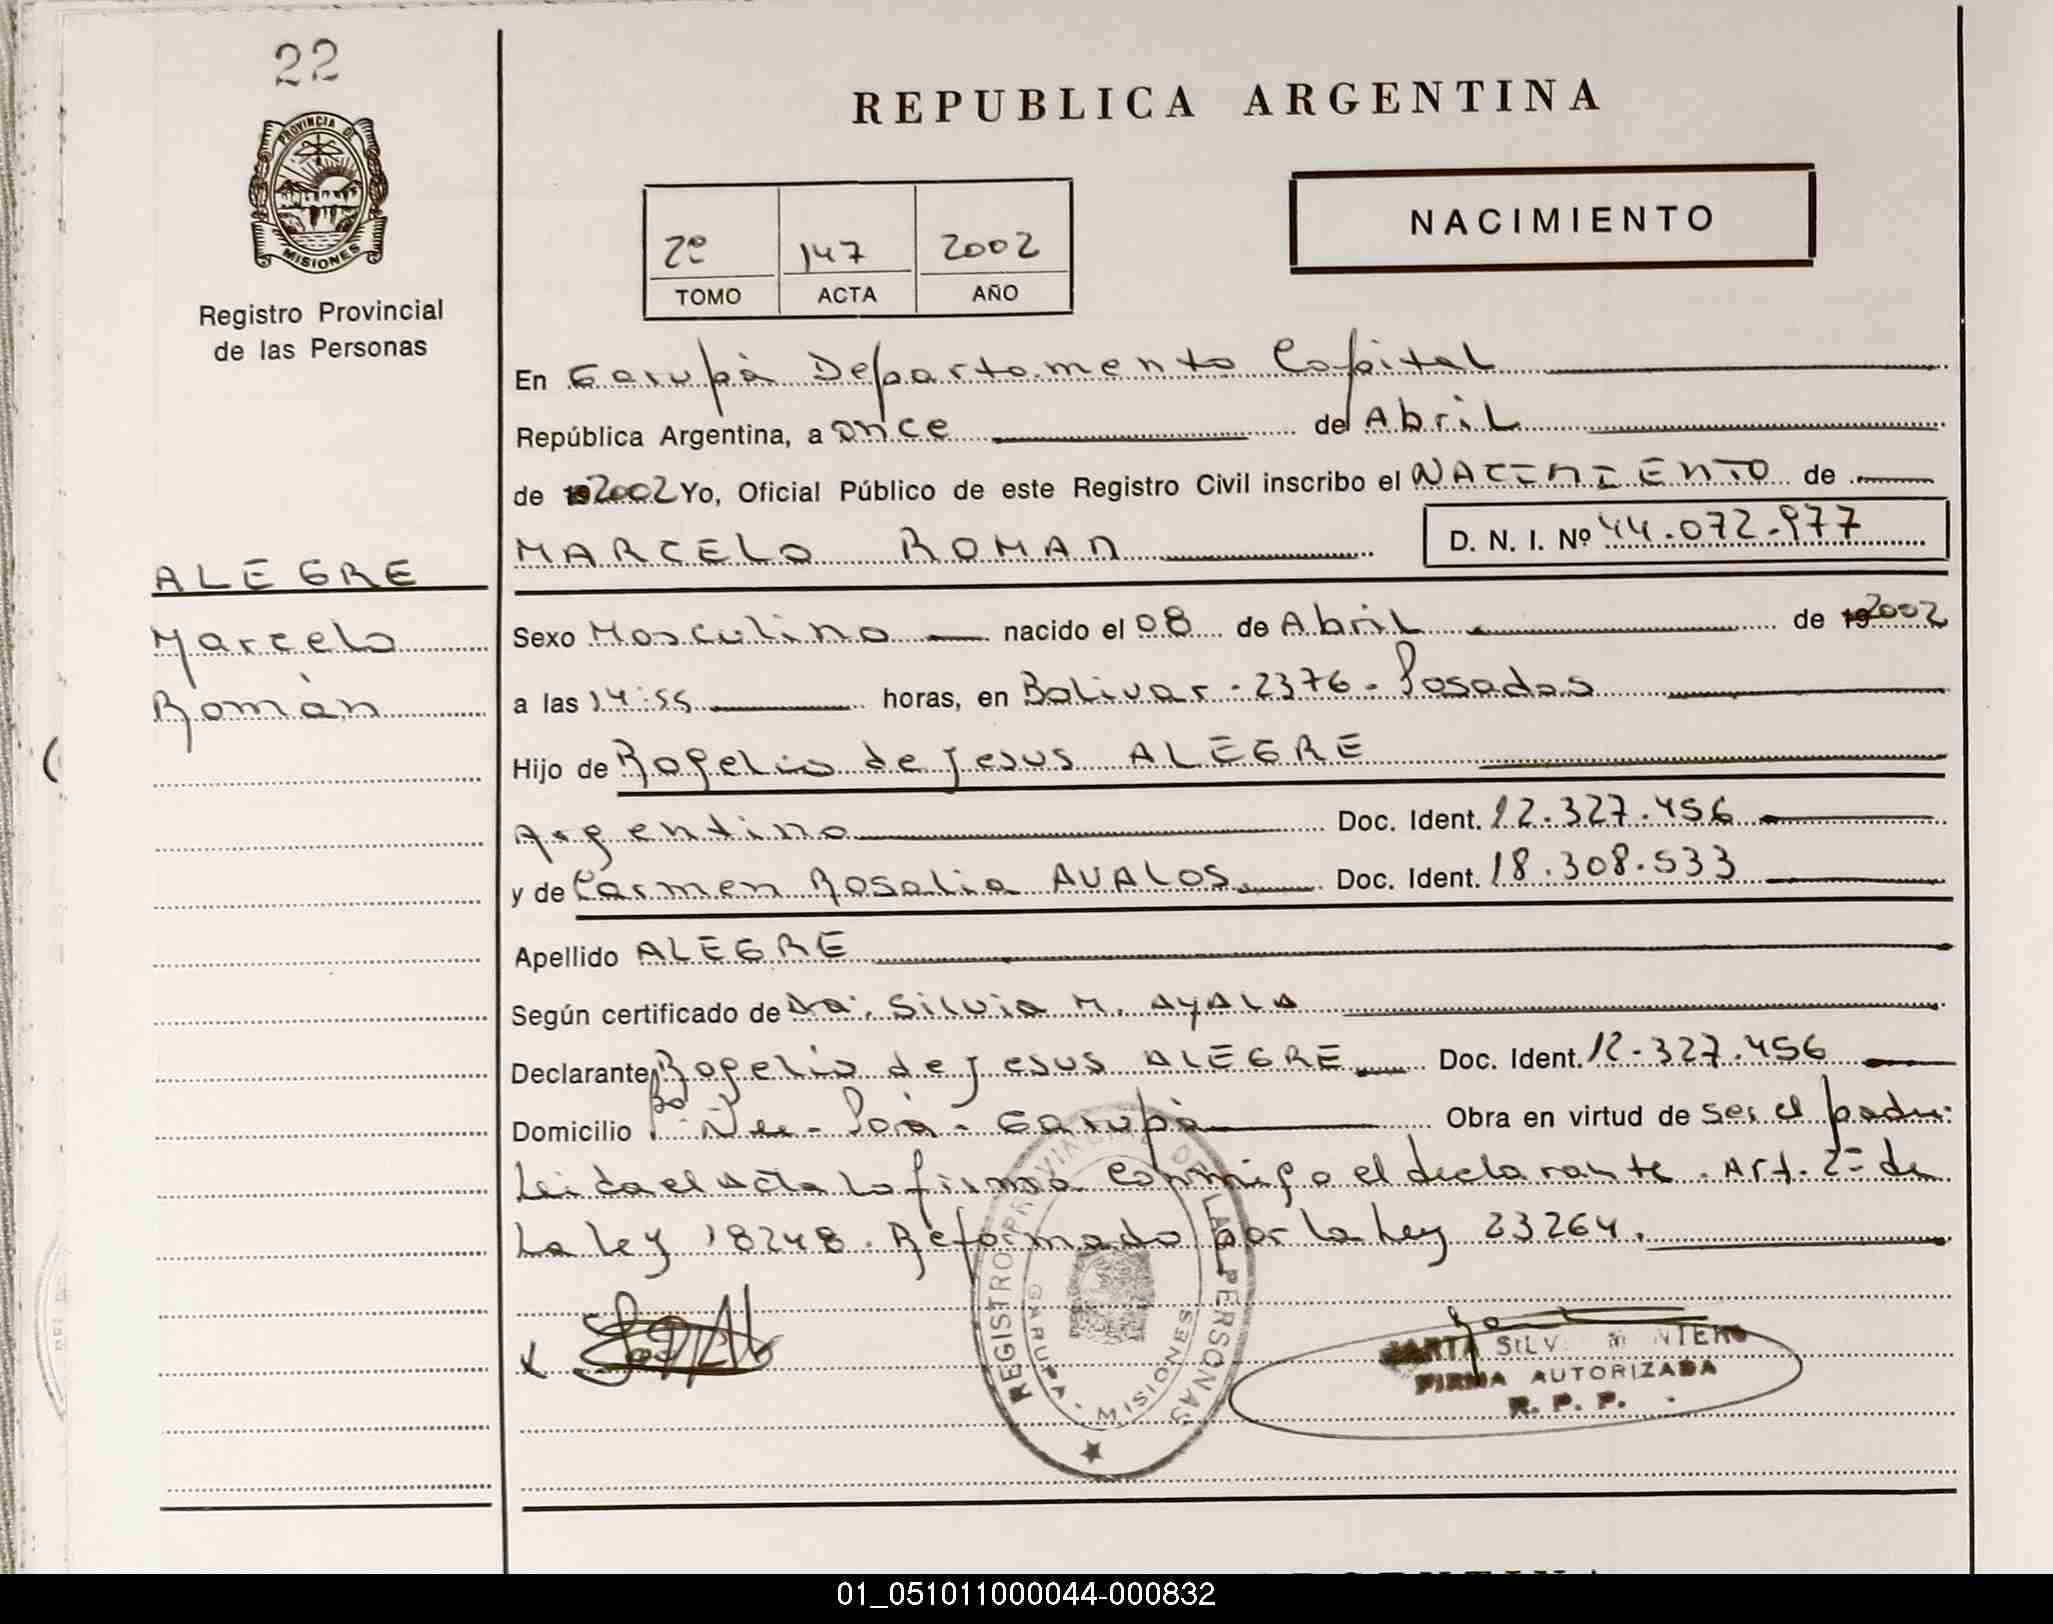 22
REPUBLICA ARGENTINA
PROVINCIA DE
MISIONES
Registro Provincial
de las Personas
NACIMIENTO
2º 147 2002
TOMO ACTA AÑO
En Garupá Departamento Capital
República Argentina, a once de Abril
de 192002 Yo, Oficial Público de este Registro Civil inscribo el NACIMIENTO de
MARCELO ROMAN D. N. I. Nº 44.072.977
ALEGRE
Marcelo
Román
Sexo Masculino nacido el 08 de Abril de 192002
a las 14:55 horas, en Bolivar - 2376 - Posadas
Hijo de Rogelio de Jesus ALEGRE
Argentino Doc. Ident. 12.327.456
y de Carmen Rosalia AVALOS Doc. Ident. 18.308.533
Apellido ALEGRE
Según certificado de Dra. Silvia M. AYALA
Declarante Rogelio de Jesus ALEGRE Doc. Ident. 12.327.456
Domicilio Bº Ñu - Porá - Garupá Obra en virtud de ser el padre:
Leida el Acta la firma conmigo el declarante. Art. 2º de
La Ley 18248. Reformado por la Ley 23264.
REGISTRO PROVINCIAL DE LAS PERSONAS
GARUPA - MISIONES
FIRMA AUTORIZADA
R. P. P.
01_051011000044-000832